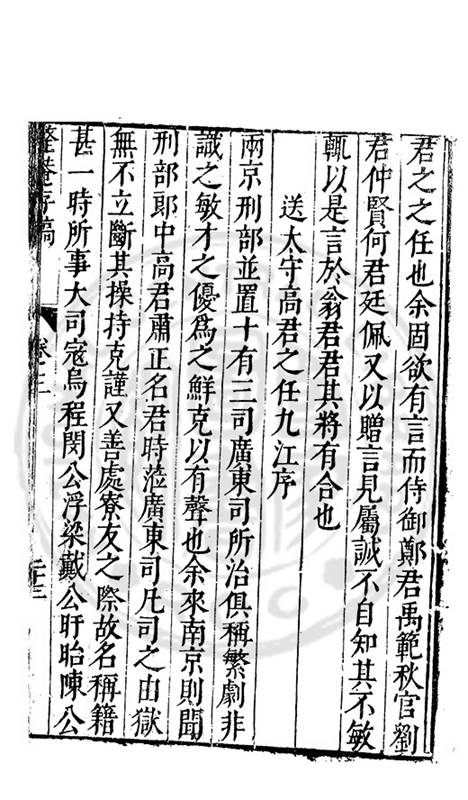 君之之任也余固欲有言而侍御鄭君禹範秋官劉
君仲賢何君廷佩又以贈言見屬誠不自知其不敏
輒以是言於翁君君其將有合也
送太守高君之任九江序
兩京刑部並置十有三司廣東司所治俱稱繁劇非
識之敏才之優爲之鮮克以有聲也余來南京則聞
刑部郎中高君肅正名君時蒞廣東司凡司之由獄
無不立斷其操持克謹又善處寮友之際故名稱籍
甚一時所事大司寇烏程閔公浮梁戴公盱眙陳公
整菴存稿 卷之二 二十三